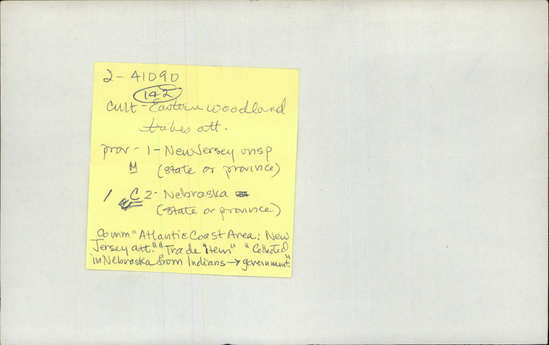 2-41090
142
cult-Eastern woodland
tribes att.
prov- 1- New Jersey unsp
M (state or province)
1 C 2- Nebraska
(state or province)
Comm "Atlantic Coast Area: New
Jersey att." "Trade Item" "Collected
in Nebraska from Indians → government"